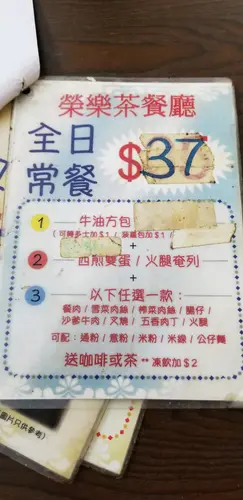 榮樂茶餐廳
全日
常餐
$37
1 牛油方包
(可轉多士加$1/菠蘿包加$1/
+
2 西煎雙蛋/火腿奄列
+
3 以下任選一款:
餐肉/雪菜肉絲/榨菜肉絲/腸仔/
沙爹牛肉/叉燒/五香肉丁/火腿
可配:通粉/意粉/米粉/米線/公仔麵
送咖啡或茶 ** 凍飲加$2
圖片只供參考)